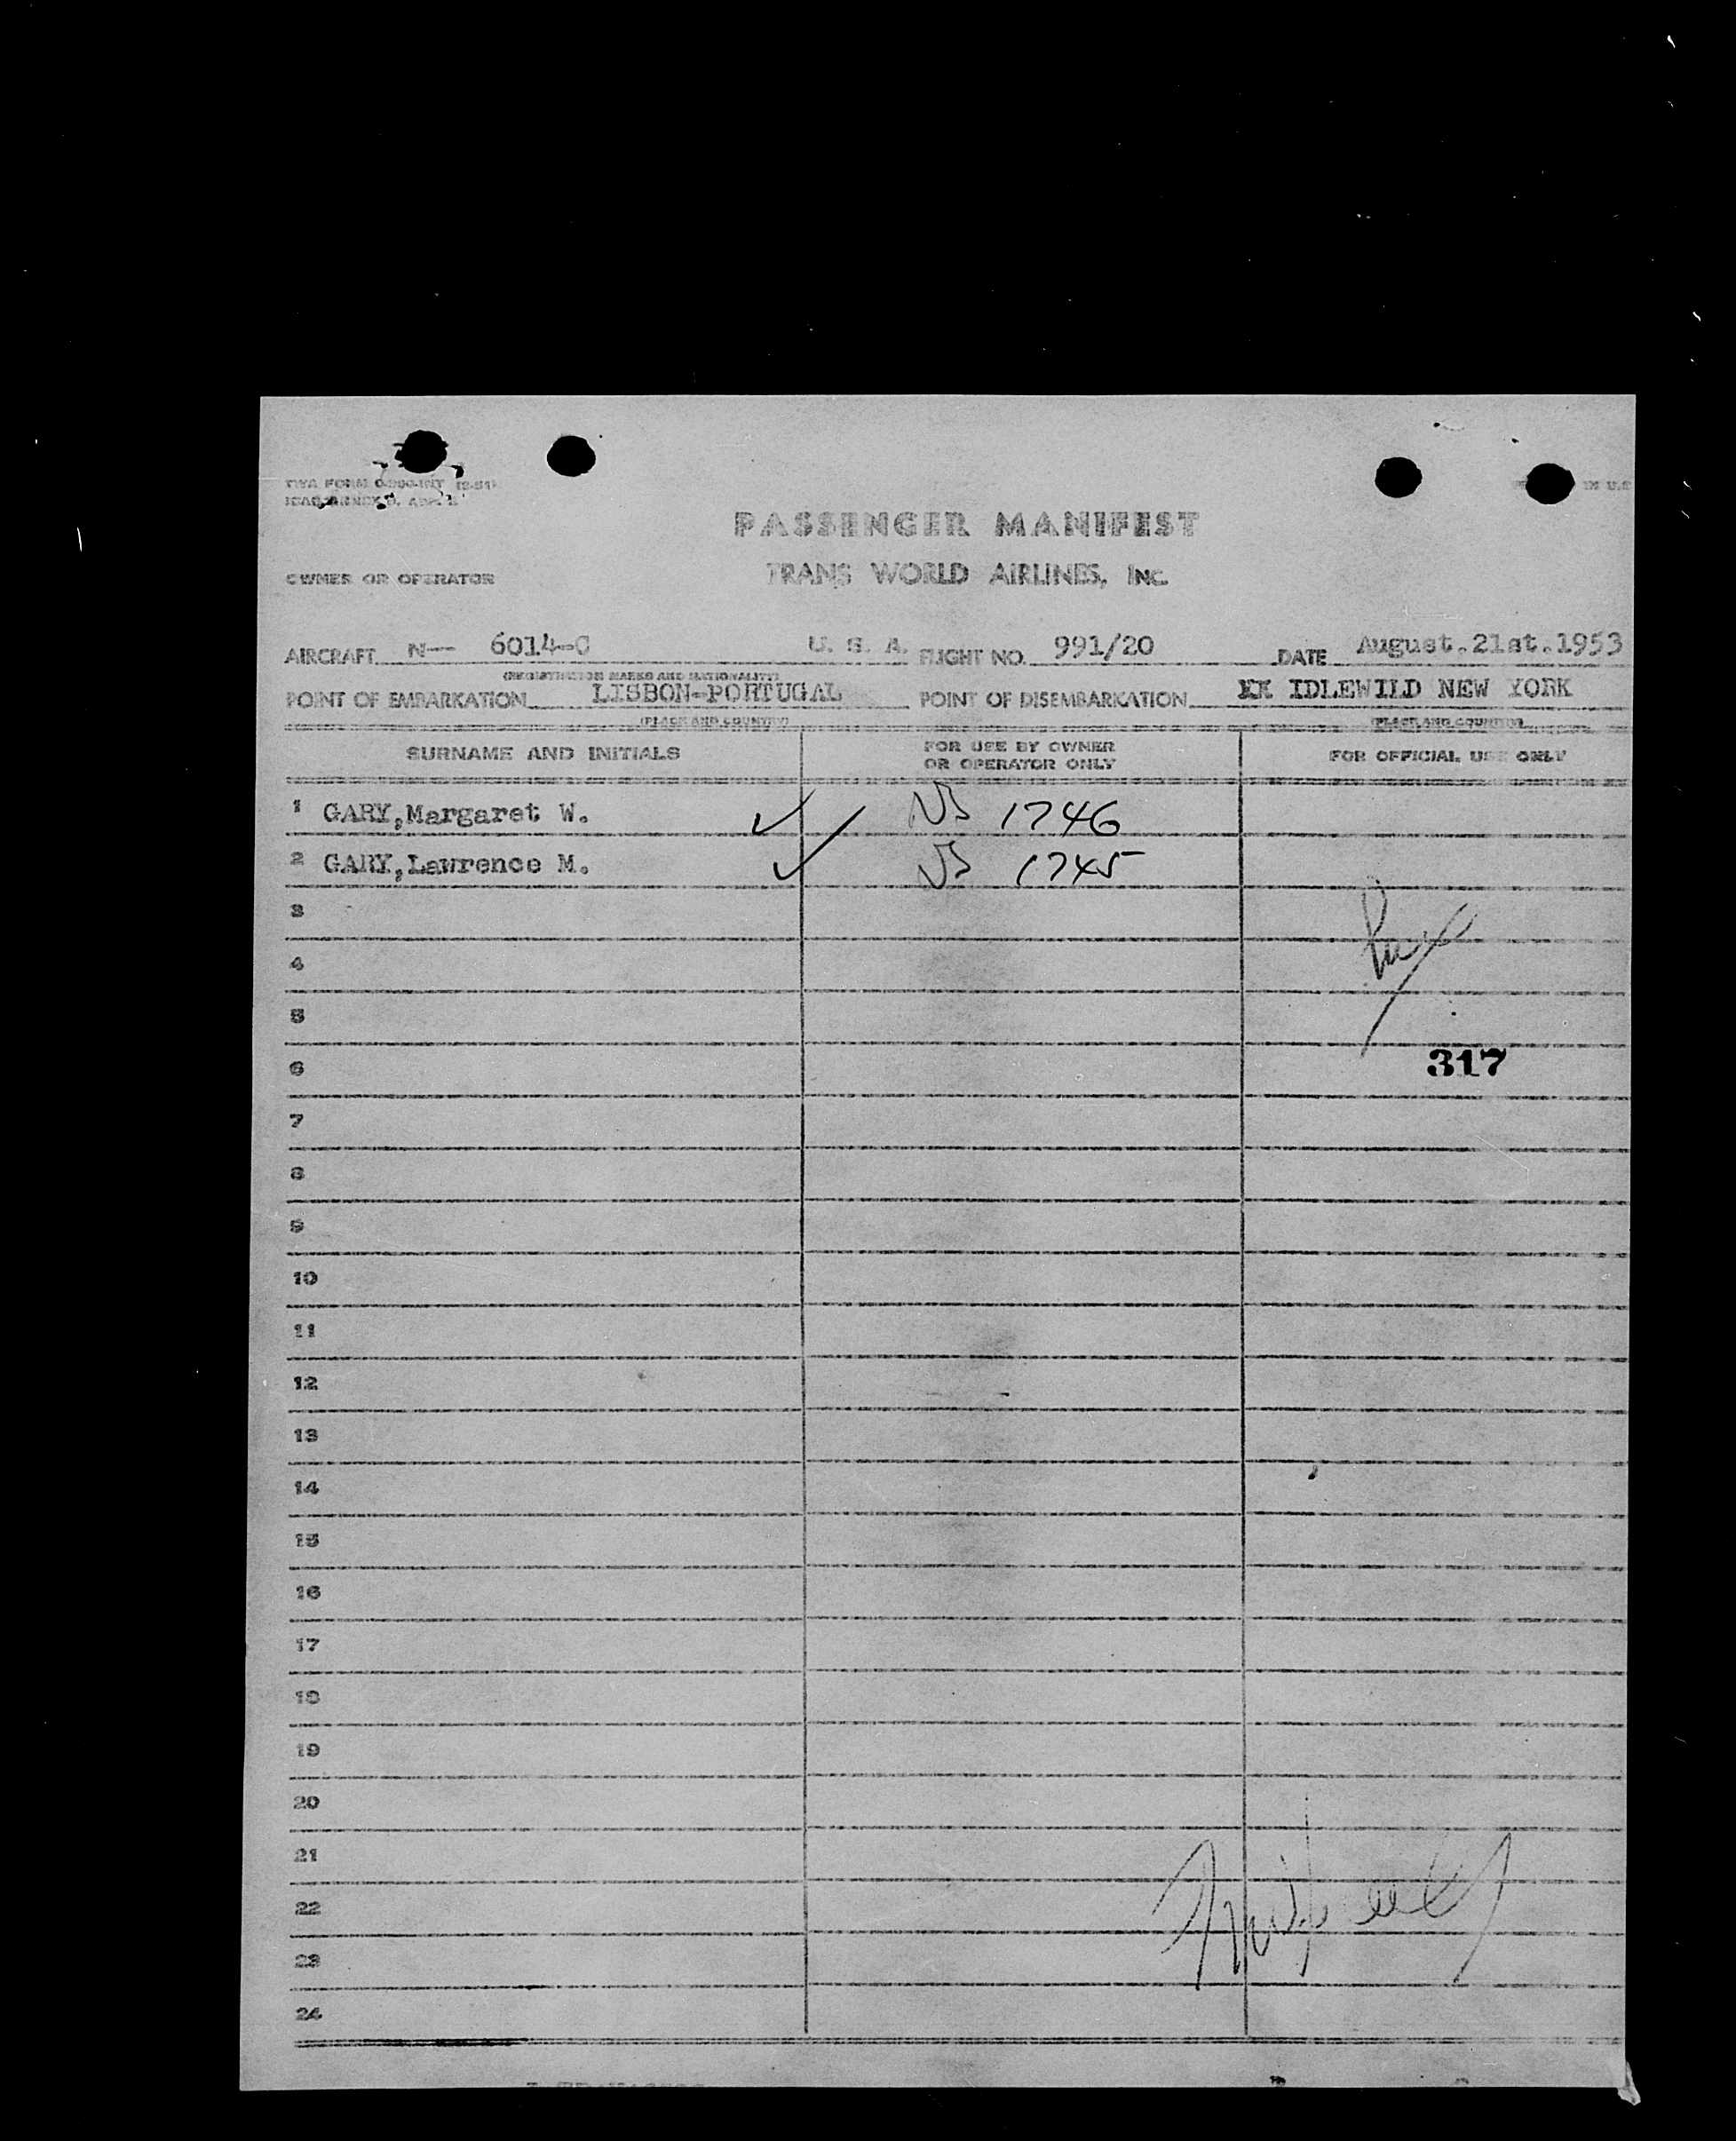 PASSENGER MANIFEST
OWNER OR OPERATOR TRANS WORLD AIRLINES, INC.
AIRCRAFT N-- 6014-C U. S. A. FLIGHT NO. 991/20 DATE August.21st.1953
(REGISTRATION MARKS AND NATIONALITY)
POINT OF EMBARKATION LISBON-PORTUGAL POINT OF DISEMBARKATION IDLEWILD NEW YORK
(PLACE AND COUNTRY) (PLACE AND COUNTRY)
SURNAME AND INITIALS FOR USE BY OWNER OR OPERATOR ONLY FOR OFFICIAL USE ONLY
1 GARY,Margaret W. 1746
2 GARY,Lawrence M. 1745
3
4
5
6 317
7
8
9
10
11
12
13
14
15
16
17
18
19
20
21
22
23
24